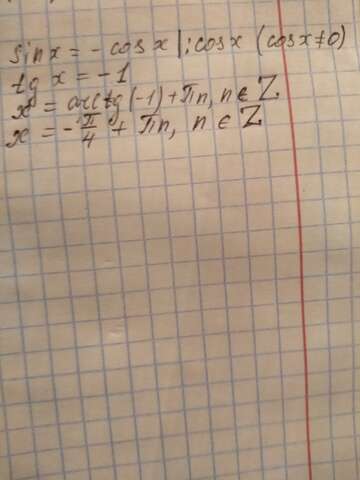 sin x = - cos x | : cos x (cos x ≠ 0)
tg x = -1
x = arctg (-1) + πn, n ∈ Z
x = - π/4 + πn, n ∈ Z